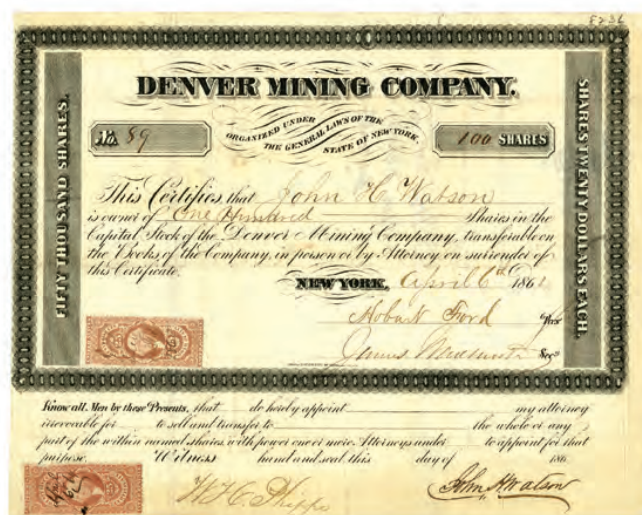 8236
DENVER MINING COMPANY.
ORGANIZED UNDER
THE GENERAL LAWS OF THE
STATE OF NEW YORK.
No. 89
100 SHARES
FIFTY THOUSAND SHARES.
SHARES TWENTY DOLLARS EACH.
This Certifies, that John H Watson
is owner of One Hundred Shares in the
Capital Stock of the Denver Mining Company, transferable on
the Books of the Company, in person or by Attorney on surrender of
this Certificate.
NEW YORK, April 6th 186
Hobart Ford
James
Secy
Know all Men by these Presents, that do hereby appoint my attorney
irrevocable for to sell and transfer to the whole or any
part of the within owned shares, with power one or more Attorneys under to appoint for that
purpose. Witness hand and seal this day of 186
W H Phipps
John H Watson